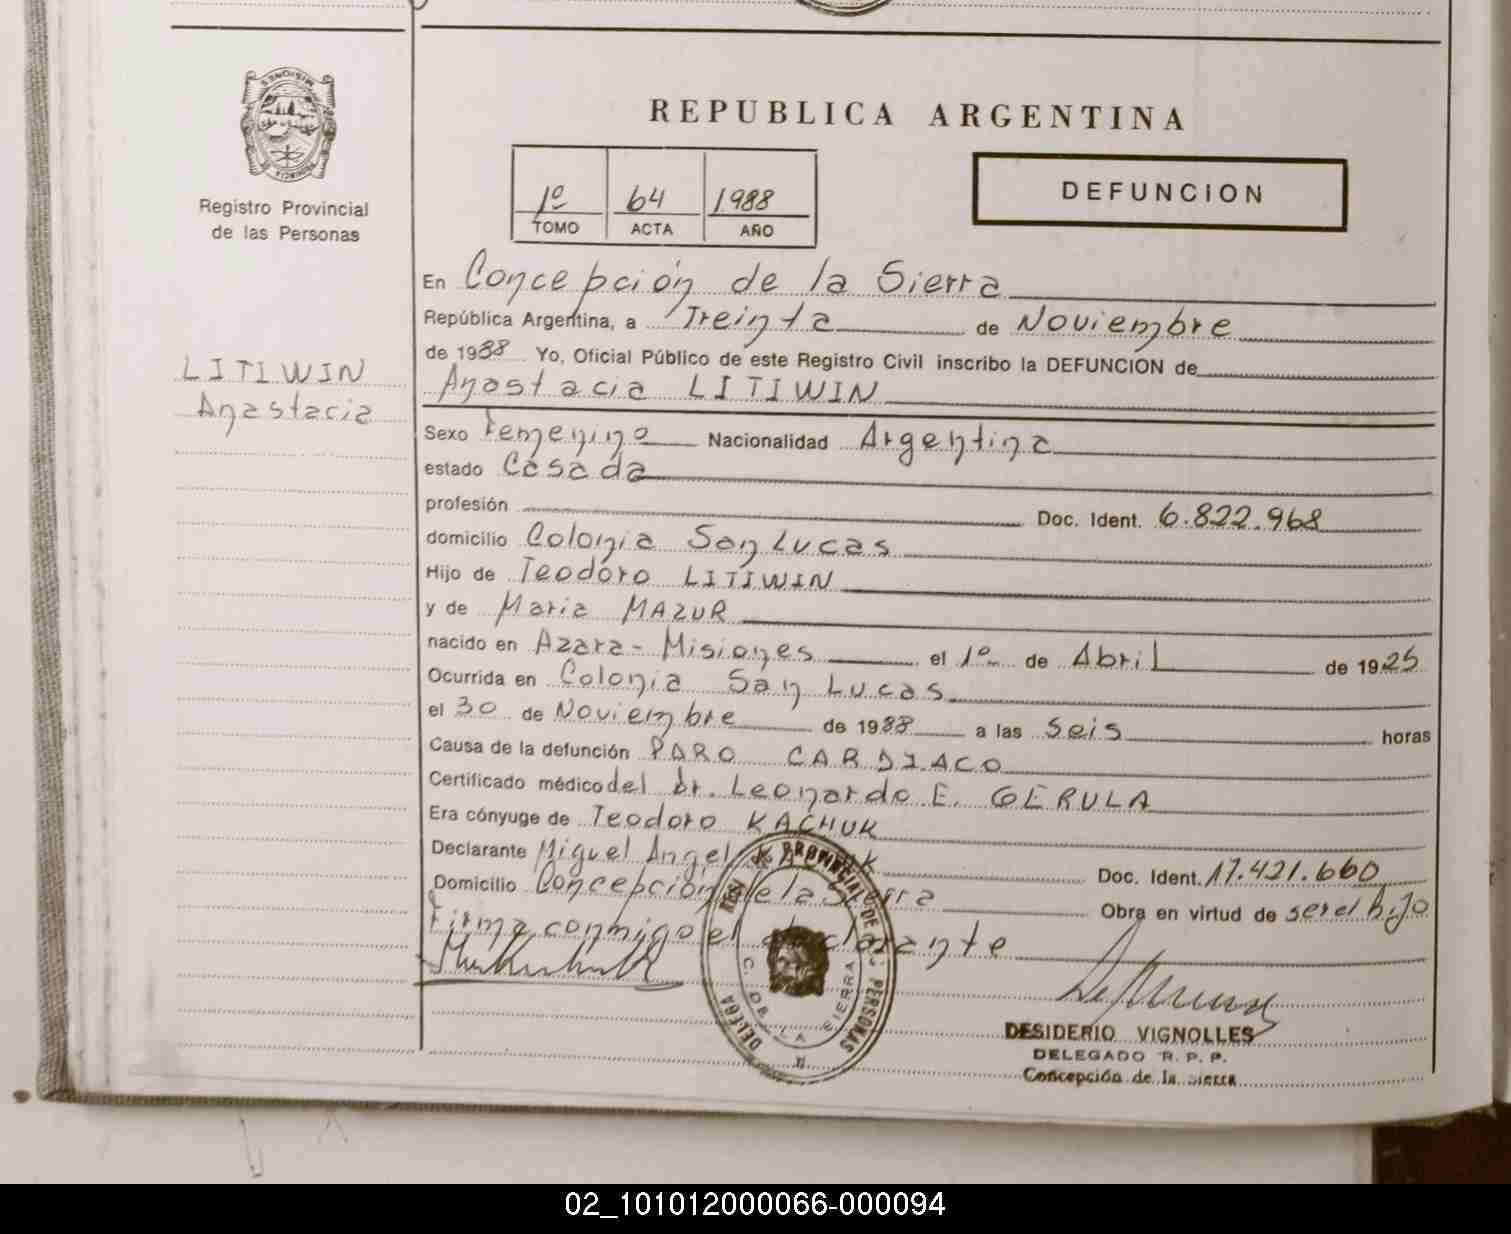 MISIONES
PROVINCIA
Registro Provincial
de las Personas
LITIWIN
Anastacia
REPUBLICA ARGENTINA
1º 64 1988
TOMO ACTA AÑO
DEFUNCION
En Concepción de la Sierra
República Argentina, a Treinta de Noviembre
de 1988 Yo, Oficial Público de este Registro Civil inscribo la DEFUNCION de
Anastacia LITIWIN
Sexo Femenino Nacionalidad Argentina
estado Casada
profesión Doc. Ident. 6.822.968
domicilio Colonia San Lucas
Hijo de Teodoro LITIWIN
y de Maria MAZUR
nacido en Azara - Misiones el 1º de Abril de 1925
Ocurrida en Colonia San Lucas
el 30 de Noviembre de 1988 a las seis horas
Causa de la defunción PARO CARDIACO
Certificado médico del Dr. Leonardo E. GERULA
Era cónyuge de Teodoro KACHUK
Declarante Miguel Angel KACHUK Doc. Ident. 17.421.660
Domicilio Concepción de la Sierra Obra en virtud de ser el hijo
Firma conmigo el declarante
PROVINCIAL DE PERSONAS
C. DE LA SIERRA
DESIDERIO VIGNOLLES
DELEGADO R. P. P.
Concepción de la Sierra
02_101012000066-000094